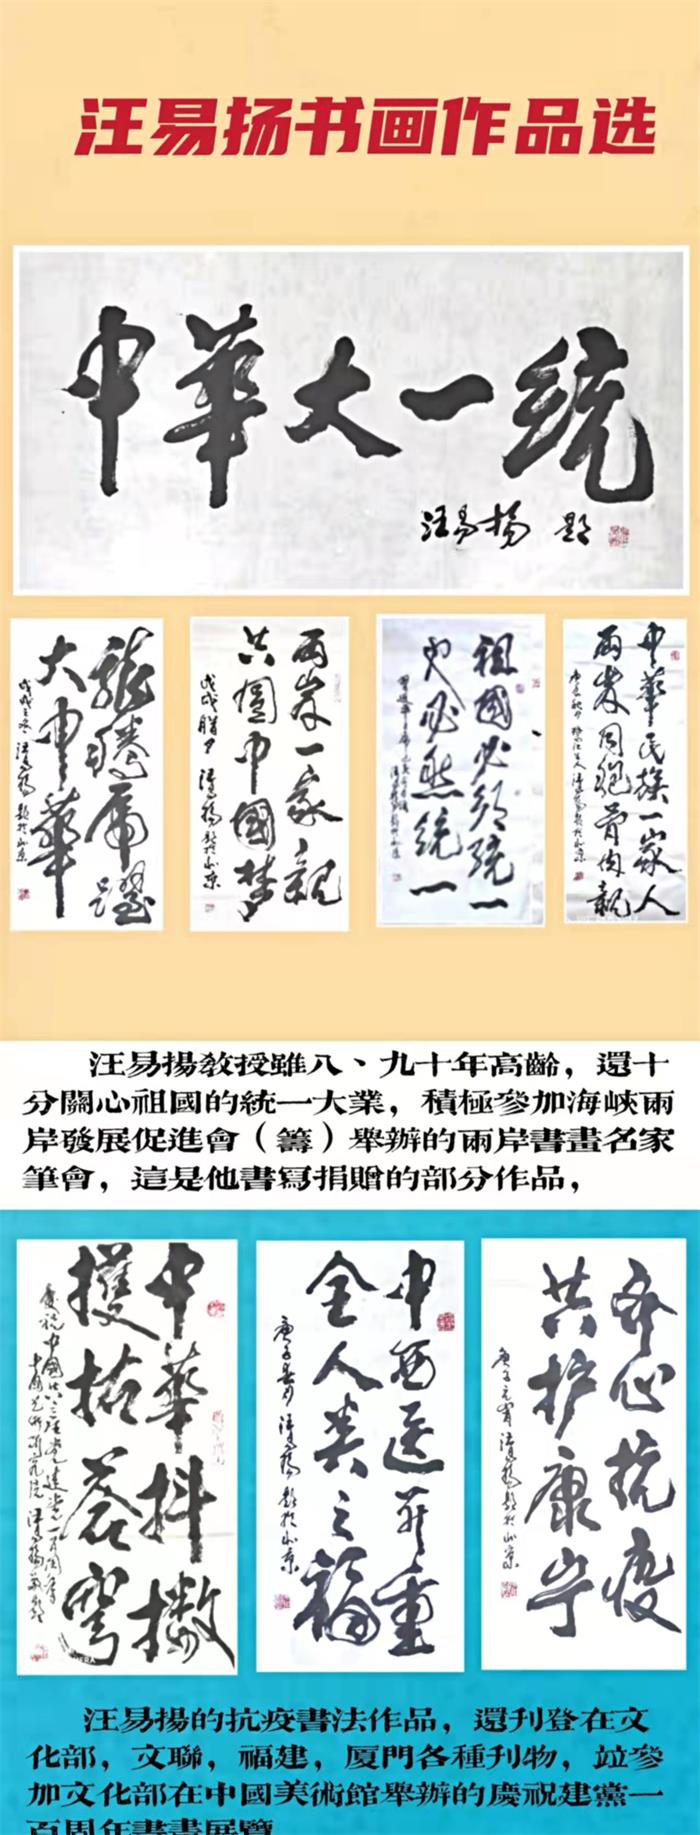 汪易扬书画作品选
中華大一统
汪易揚 題
龍騰虎躍
大中華
戊戌之冬 汪易揚 題於北京
兩岸一家親
共圓中國梦
戊戌腊月 汪易揚 題於北京
祖國必須統一
也必然統一
中華民族一家人
兩岸同胞骨肉親
汪易揚教授雖八、九十年高齡，還十
分關心祖國的統一大業，積極參加海峽兩
岸發展促進會（籌）舉辦的兩岸書畫名家
筆會，這是他書寫捐贈的部分作品，
中華抖擞
中西医并重
全人类之福
庚子春月 汪易揚 題於北京
齐心抗疫
共护康宁
庚子元宵 汪易揚 題於北京
汪易揚的抗疫書法作品，還刊登在文
化部，文聯，福建，廈門各種刊物，竝參
加文化部在中國美術館舉辦的慶祝建黨一
百周年書畫展覽